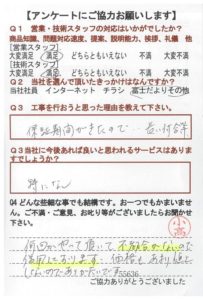 【アンケートにご協力お願いします】
Q1 営業・技術スタッフの対応はいかがでしたか?
商品知識、問題対応速度、提案、説明能力、挨拶、礼儀 他
【営業スタッフ】
大変満足 満足 どちらともいえない 不満 大変不満
【技術スタッフ】
大変満足 満足 どちらともいえない 不満 大変不満
Q2 当社を選んで頂いたきっかけはなんですか?
当社社員 インターネット チラシ 富士だよりその他
Q3 工事を行おうと思った理由を教えて下さい。
保証期間がきたので
Q3当社に今後あれば良いと思われるサービスはありますでしょうか?
特になし
Q4 どんな些細な事でも結構です。お一つでもかまいません。ご不満・ご意見、お叱り等がございましたらお聞かせ下さい。
何回かやって頂いて不都合がないので
信用しております 価格も
ありがたいです
55636
ご協力ありがとうございました